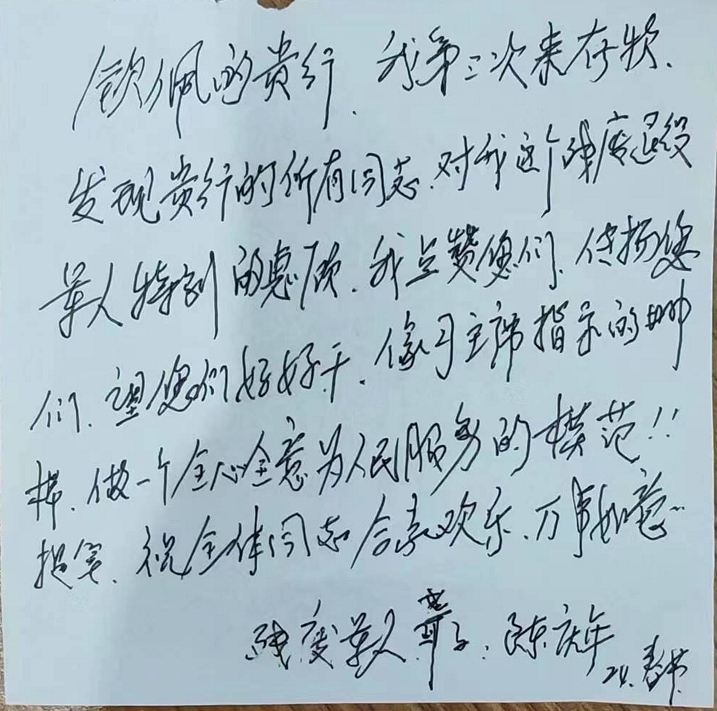 钦佩的贵行、我第三次来存款、
发现贵行的所有同志、对我这个残废退役
军人特别的惠顾、我点赞您们、传扬您
们、望您们好好干、像习主席指示的那
样、做一个全心全意为人民服务的模范!!
祝全体同志合家欢乐、万事如意
残废军人 聋子:陈庆年
24.春节